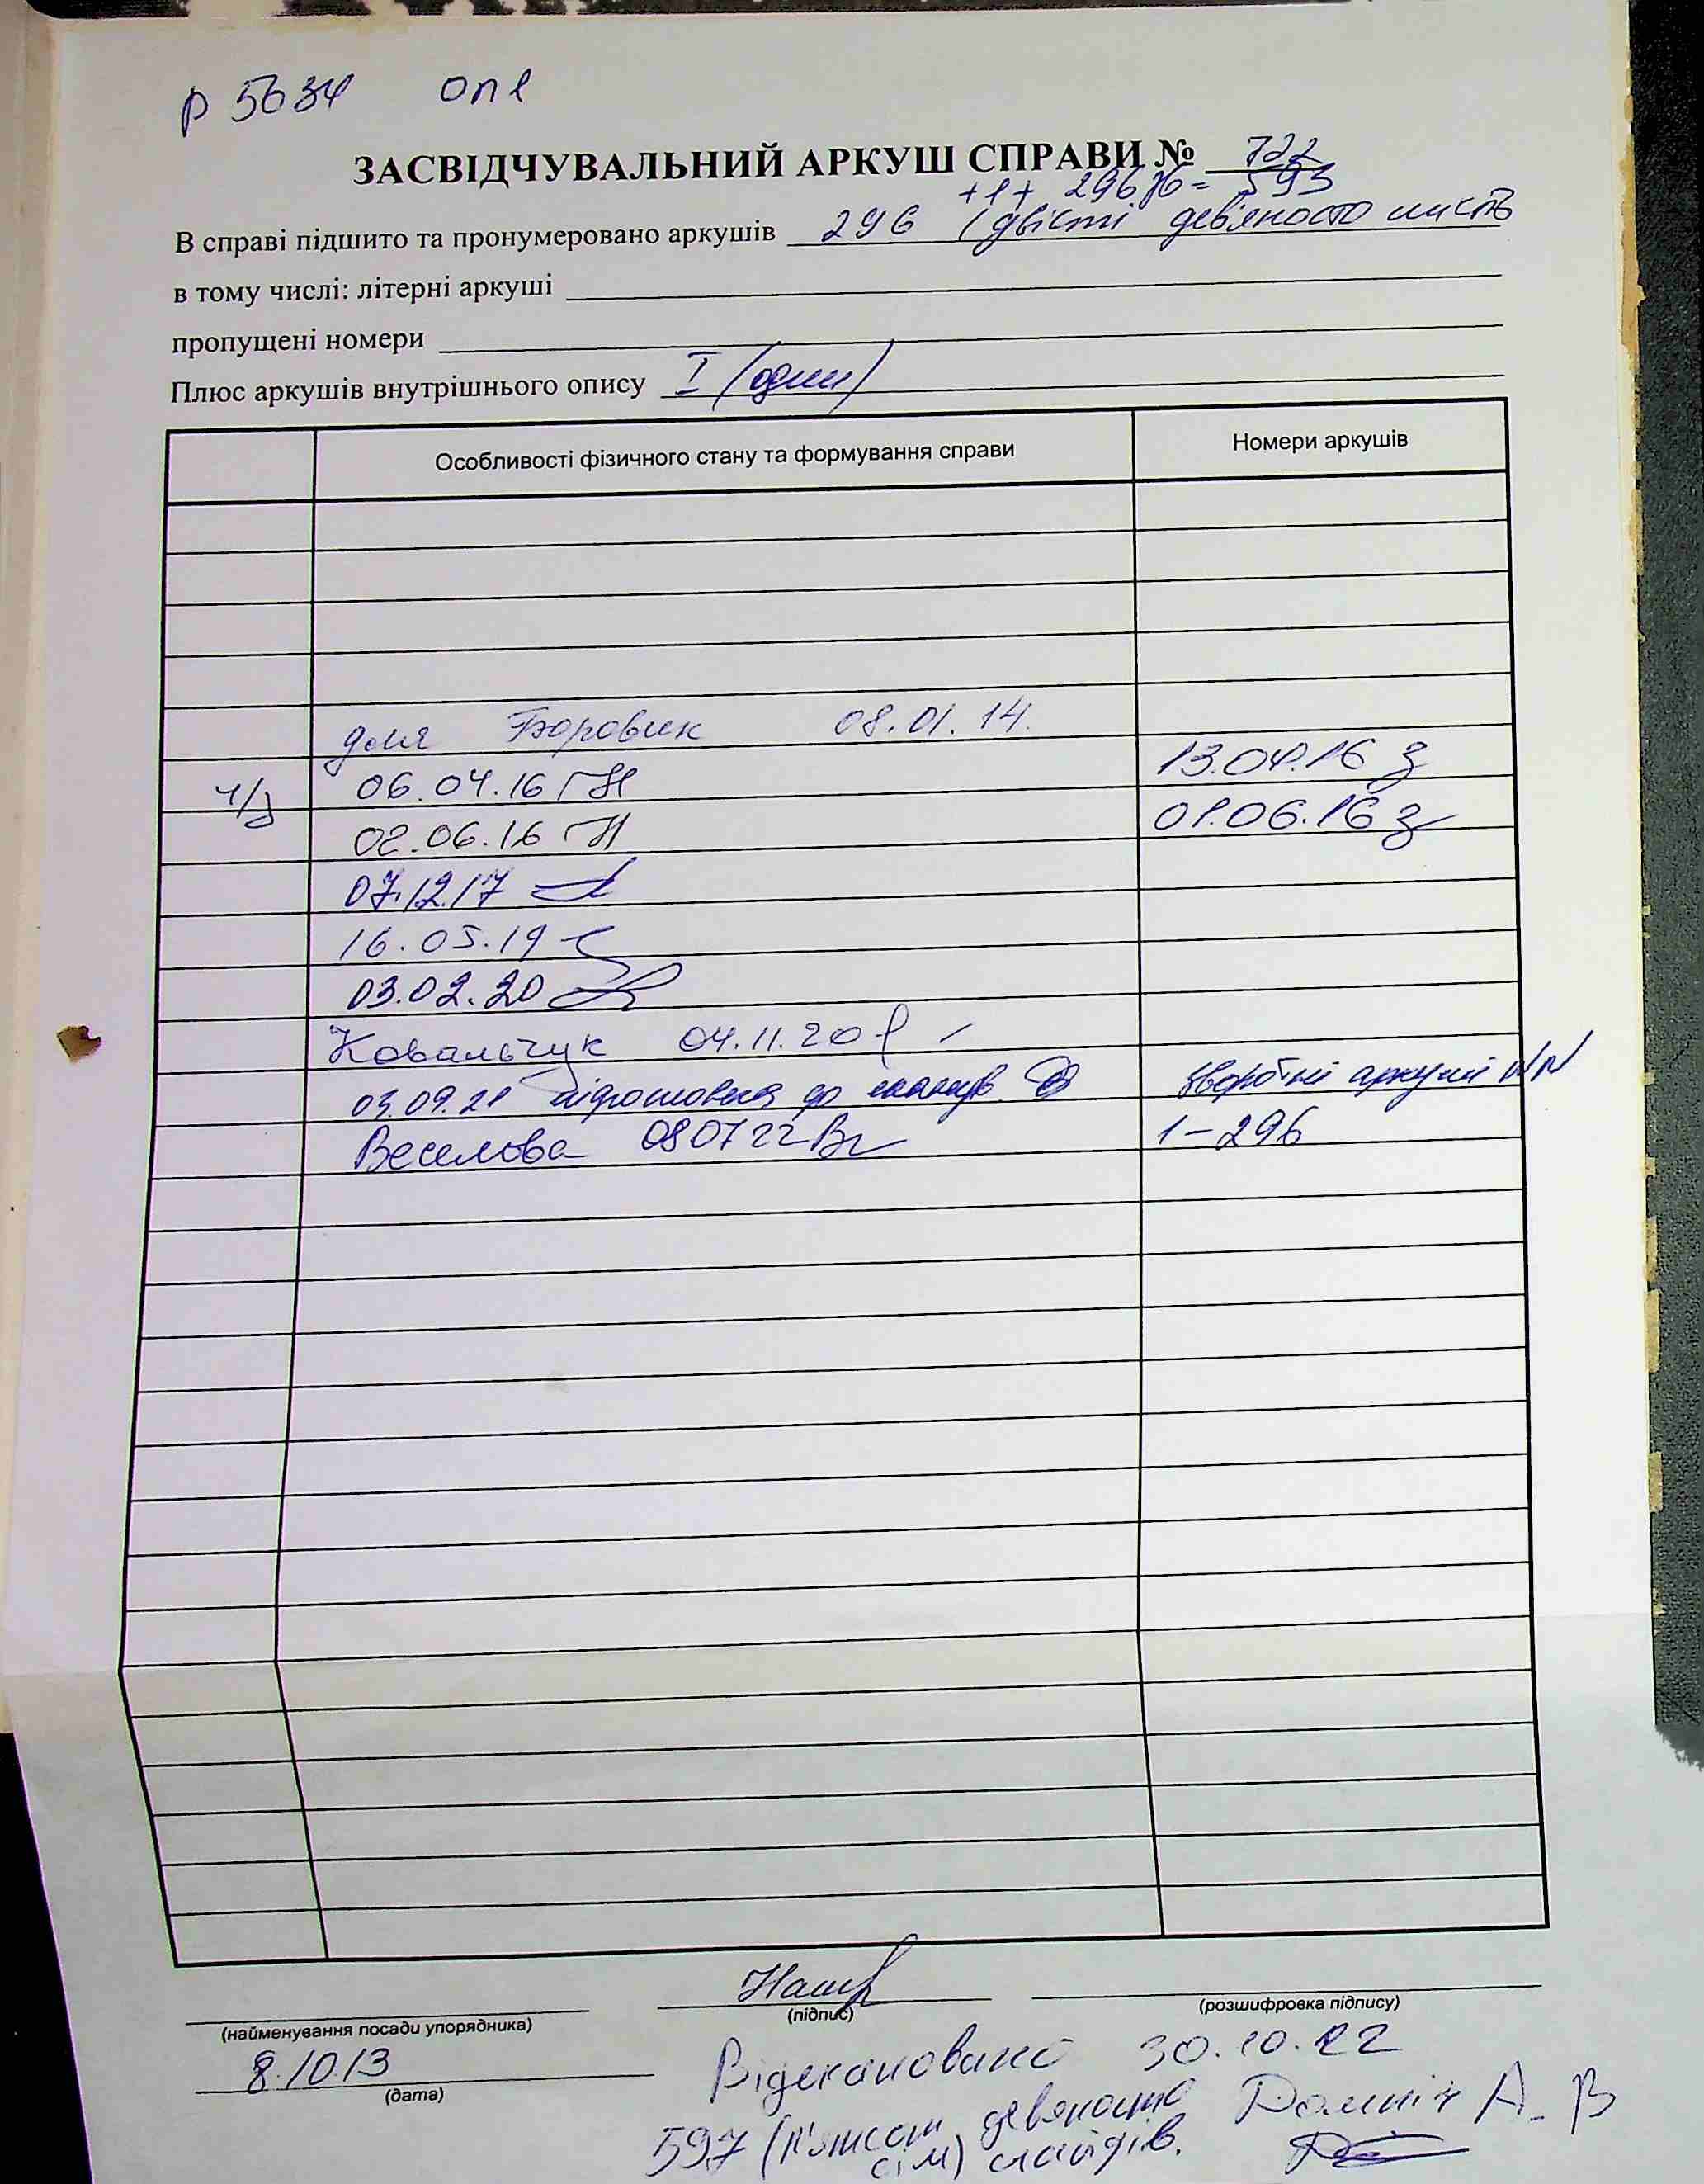 Р 5634 оп 1
ЗАСВІДЧУВАЛЬНИЙ АРКУШ СПРАВИ № 722
+1+ 296 = 593
В справі підшито та пронумеровано аркушів 296 (двісті дев'яносто шість
в тому числі: літерні аркуші
пропущені номери
Плюс аркушів внутрішнього опису I (один)
Особливості фізичного стану та формування справи Номери аркушів
Боровик 08.01.14.
06.04.16 13.04.16
ч/з
02.06.16 01.06.16
07.12.17
16.05.19
03.02.20
Ковальчук 04.11.20
03.09.21 підготовка до сканув. зворотні аркуші
Веселова 08 07 22 1-296
(підпис) (розшифровка підпису)
(найменування посади упорядника)
8.10.13
(дата)
Відскановано 30.10.22
597 (п'ятсот дев'яносто А. В
сім) слайдів.